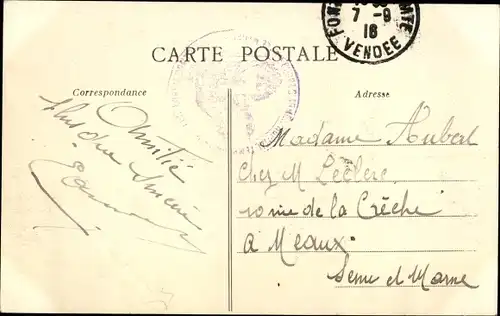 FON TE
7-9
16
VENDEE
CARTE POSTALE
Correspondance
Adresse
Amitié
plus que sincère
Madame Aubert
Chez M Leclerc
10 rue de la Crèche
à Meaux
Seine et Marne